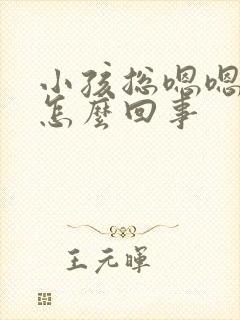 小孩总嗯嗯
怎麼回事
王元暉